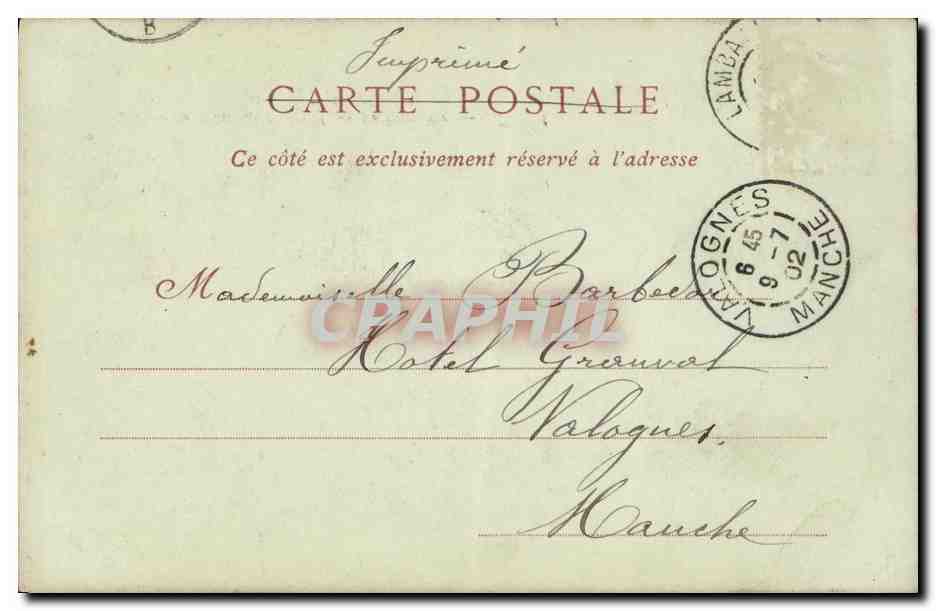 B
LAMBA
Imprimé
CARTE POSTALE
Ce côté est exclusivement réservé à l'adresse
VALOGNES
6 45
9 - 7
02
MANCHE
Mademoiselle
CPAPHIL
Hotel Granval
Valognes.
Manche